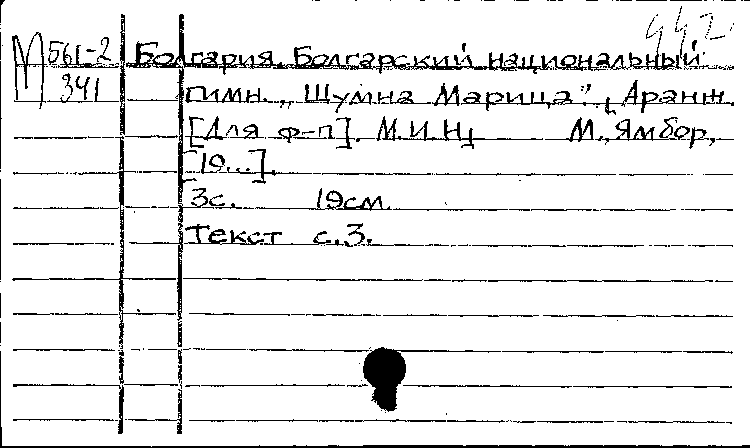 442
М 561-2 Болгария. Болгарский национальный
341 гимн. „Шумна Марица". [Аранж.
[Для ф-п]. М.И.Н] М., Ямбор,
[19...].
3с. 19см.
Текст с.3.